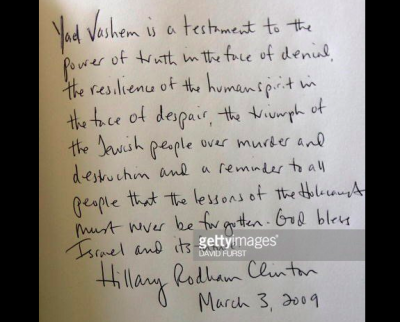 Yad Vashem is a testament to the
power of truth in the face of denial,
the resilience of the human spirit in
the face of despair, the triumph of
the Jewish people over murder and
destruction and a reminder to all
people that the lessons of the Holocaust
must never be forgotten. God bless
Israel and its
gettyimages®
DAVID FURST
Hillary Rodham Clinton
March 3, 2009